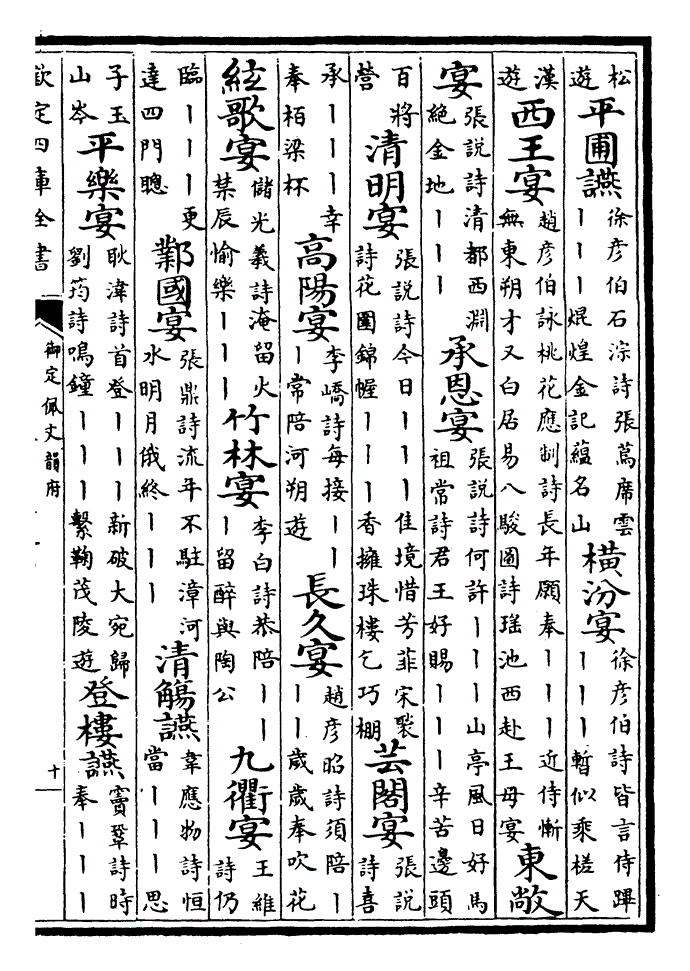 松遊平圃讌徐彥伯石淙詩張蔦席雲丨丨丨焜煌金記蘊名山橫汾宴徐彥伯詩皆言侍蹕丨丨丨暫似乘槎天
漢遊西王宴趙彥伯詠桃花應制詩長年願奉丨丨丨近侍慚無東朔才又白居易八駿圖詩瑤池西赴王母宴東敞
宴張說詩清都西淵絶金地丨丨丨承恩宴張說詩何許丨丨丨山亭風日好馬祖常詩君王好賜丨丨丨辛苦邊頭
百將營清明宴張說詩今日丨丨丨佳境惜芳菲宋褧詩花圍錦幄丨丨丨香擁珠樓乞巧棚芸閣宴張說詩喜
承丨丨丨幸奉栢梁杯高陽宴李嶠詩每接丨丨丨常陪河朔遊長久宴趙彥昭詩須陪丨丨丨歲歲奉吹花
絃歌宴儲光羲詩淹留火禁辰愉樂丨丨丨竹林宴李白詩恭陪丨丨丨留醉與陶公九衢宴王維詩仍
臨丨丨丨更達四門聰鄴國宴張鼎詩流年不駐漳河水明月俄終丨丨丨清觴讌韋應物詩恒當丨丨丨思
子玉山岑平樂宴耿湋詩首登丨丨丨新破大宛歸劉筠詩鳴鐘丨丨丨繫鞠茂陵遊登樓讌竇鞏詩時奉丨丨丨
欽定四庫全書
御定佩文韻府
十